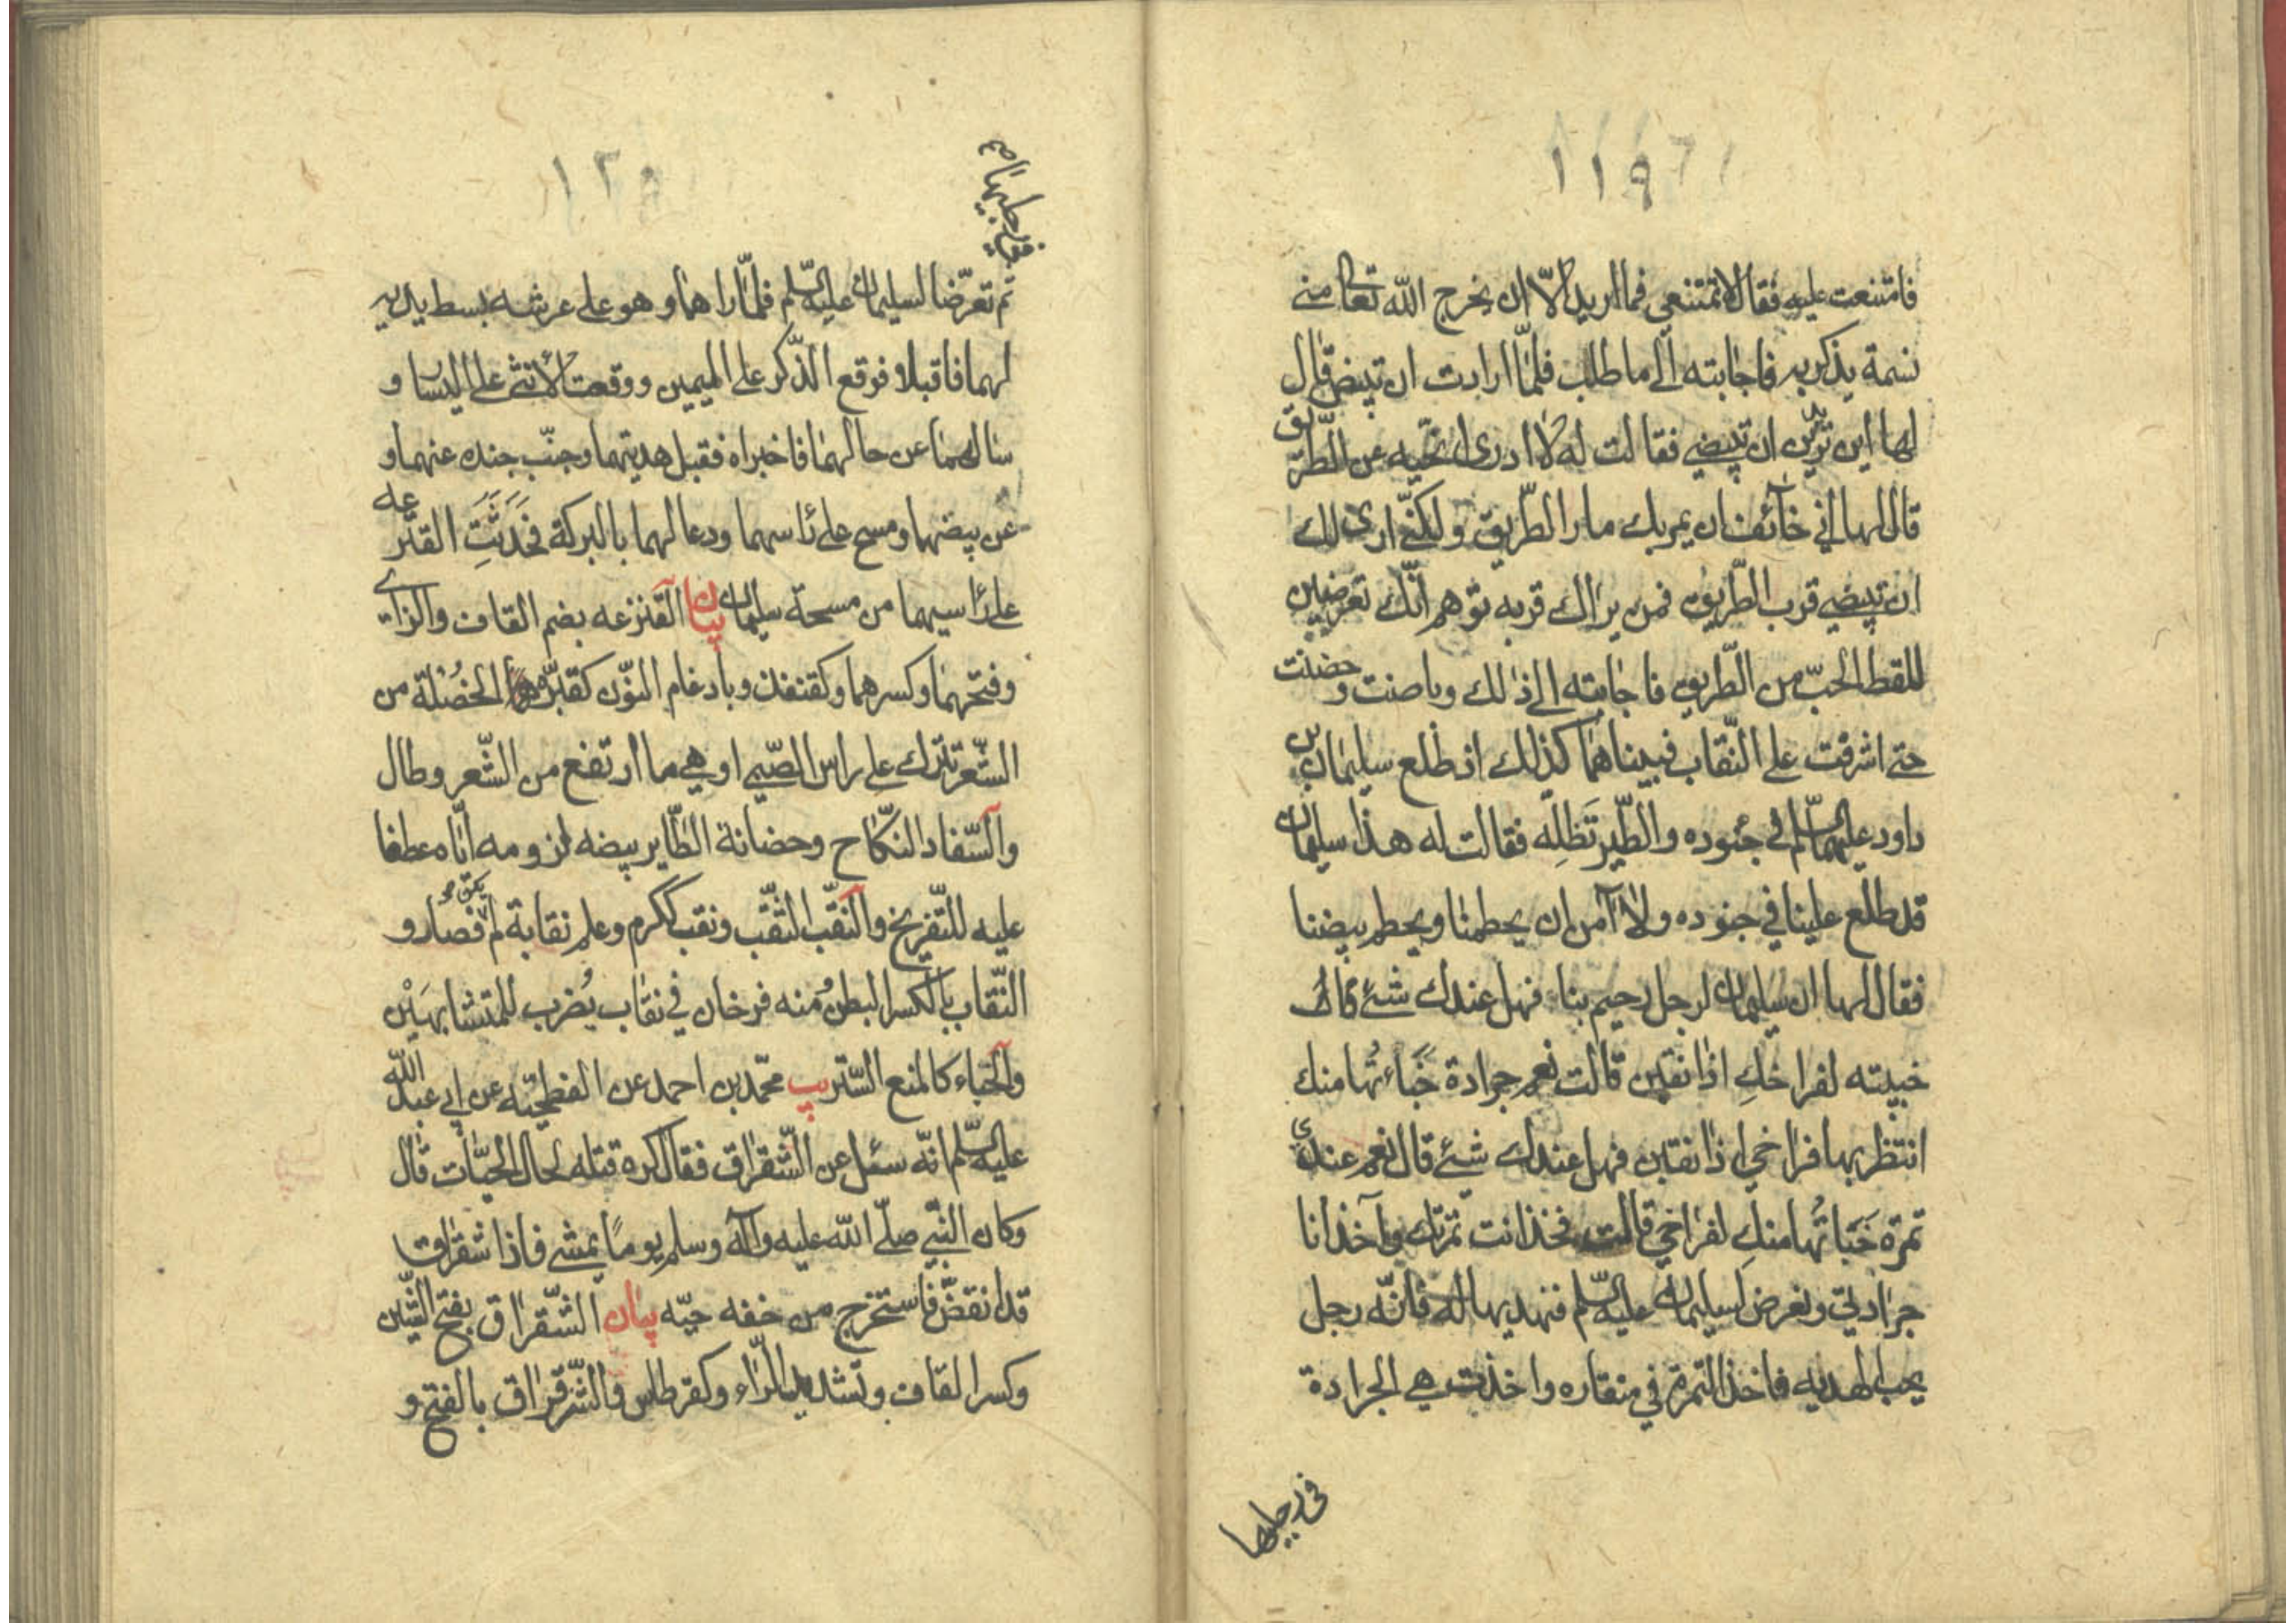 ١١٩
فامتنعت عليه فقال لا تمتنعي فما اريد الّا ان يخرج الله تعالى منّي
نسمة يذكر به فاجابته الى ما طلب فلمّا ارادت ان تبيض قال
لها اين تريدين ان تبيضي فقالت له لا ادرى انحّيه عن الطّريق
قال لها انّي خائف ان يمر بك مار الطّريق ولكنّي ارى لك
ان تبيضي قرب الطّريق فمن يراك قربه توهم انّك تعرضين
للقط الحبّ من الطّريق فاجابته الى ذالك وباضت وحضنت
حتى اشرفت على النّقاب فبيناهما كذلك اذ طلع سليمان بن
داود عليهما السّلم في جنوده والطّير تَظِلّه فقالت له هذا سليمان
قد طلع علينا في جنوده ولا آمن ان يحطمنا ويحطم بيضنا
فقال لها ان سليمان لرجل رحيم بنا فهل عندك شيئ
خبيته لفراخكِ اذا نقبن قالت نعم جرادة خَبَاءتُها منك
انتظر بها فراخي اذا نقبن فهل عندك شيئ قال نعم عندي
تمرة خَبَاتُها منكِ لفراخي قالت فخذ انت تمرتك وآخذ انا
جرادتي ونعرض لسليمان عليه السّلم فنهديها له فانّه رجل
يحب الهديه فاخذ التّمرة في منقاره واخذت هي الجرادة
في رجليها
١٢٠
في رجليها
ثم تعرّضا لسليمان عليه السّلم فلمّا راهما وهو على عرشه بسط يديه
لهما فاقبلا فوقع الذّكر على اليمين ووقعت الانثى على اليسار و
سالهما عن حالهما فاخبراه فقبل هديتهما وجنّب جنده عنهما و
عن بيضهما ومسح على رأسهما ودعا لهما بالبركة فحَدَثَتِ القنزعه
على رأسيهما من مسحة سليمان بيان القنزعه بضم القاف والزاي
وفتحهما وكسرهما وكقنفذ وبادغام النّون كقبّره الخُصْلة من
الشّعر تترك على راس الصّبي او هي ما ارتفع من الشّعر وطال
والسّفاد النّكاح وحضانة الطّاير بيضه لزومه ايّاه عطفا
عليه للتّفريخ والنّقب الثّقب ونقب ككرم وعلم نقابة لم يكن فصار و
النّقاب بالكسر البطن ومنه فرخان في نقاب يُضرب للمتشابهَيْن
والخَباء كالمنع السّتر يب محمّد بن احمد عن الفطحيّه عن ابي عبد الله
عليه السّلم انّه سئل عن الشّقراق فقال كره قتله لحال الحيّات قال
وكان النّبي صلّى الله عليه وآله وسلم يومًا يمشي فاذا شقراق
قد انقضّ فاستخرج من خفه حيّه بيان الشّقراق بفتح الشّين
وكسر القاف وتشديد الرّاء وكقرطاس والشّرقراق بالفتح و